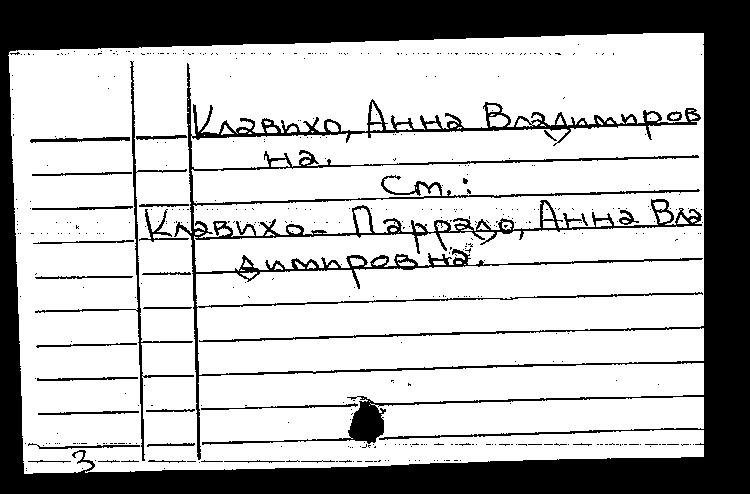 Клавихо, Анна Владимиров
на.
См.:
Клавихо- Паррадо, Анна Вла
димировна.
3